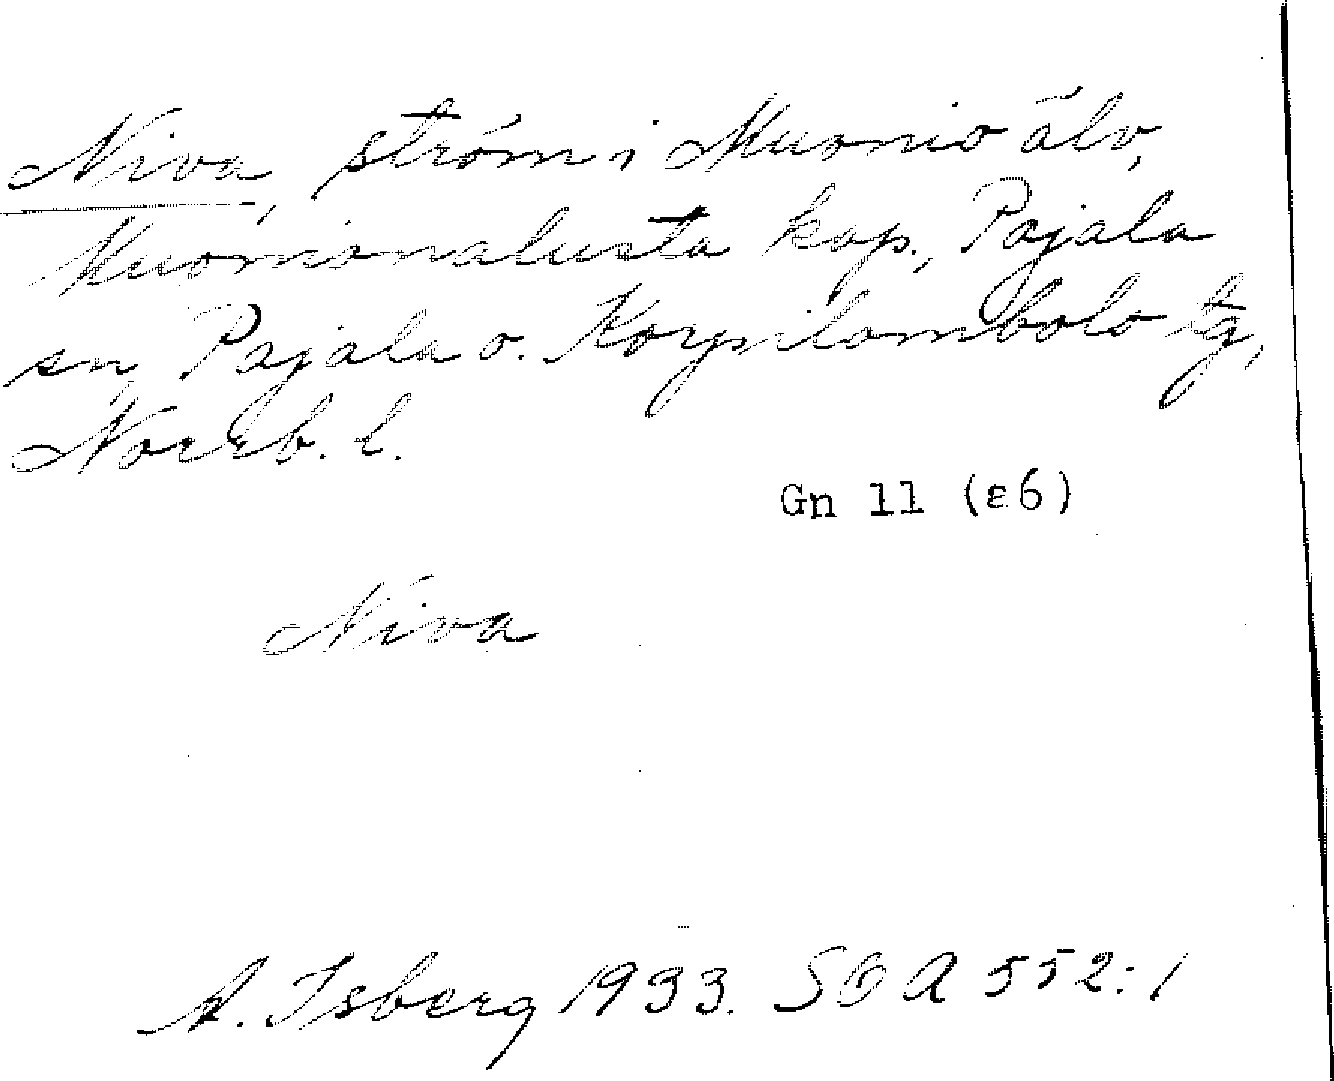 Niva, ström i Muonio älv,
Muonionalusta kap., Pajala
sn, Pajala o. Korpilombolo tg,
Norrb. l.
Gn 11 (ε6)
Niva
A. Isberg 1933. SOA 552:1